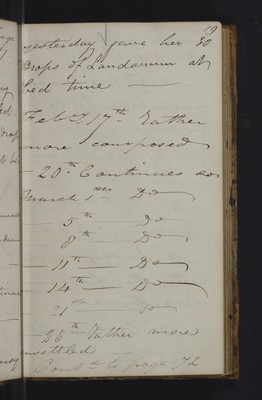 19
yesterday gave her 30
Drops of Laudanum at
bed time —
Feb.y 17th Rather
more composed
— 20th Continues so
March 1st Do
— 5th Do
— 8th — Do
— 11th — Do
— 14th — Do
— 21st — Do
— 26th Rather more
unsettled
Contd to page 72